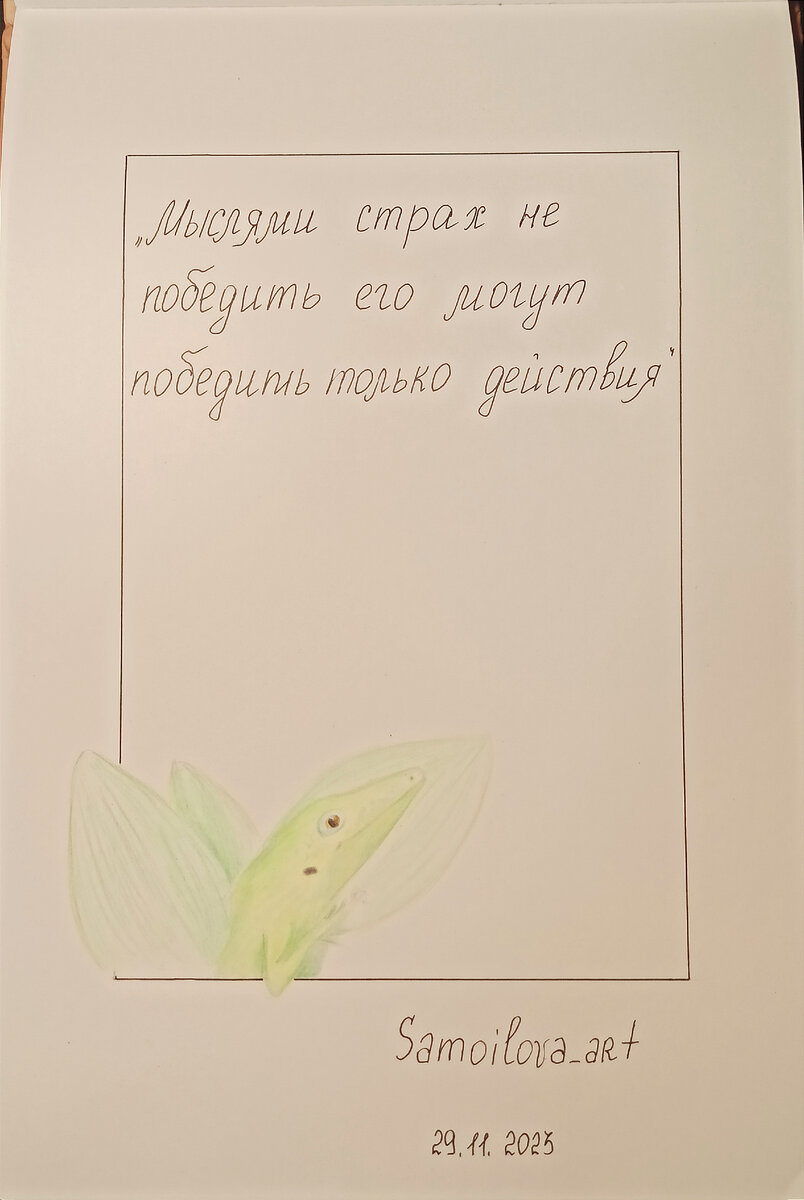 „Мыслями страх не
победить его могут
победить только действия“
Samoilova_art
29.11.2025